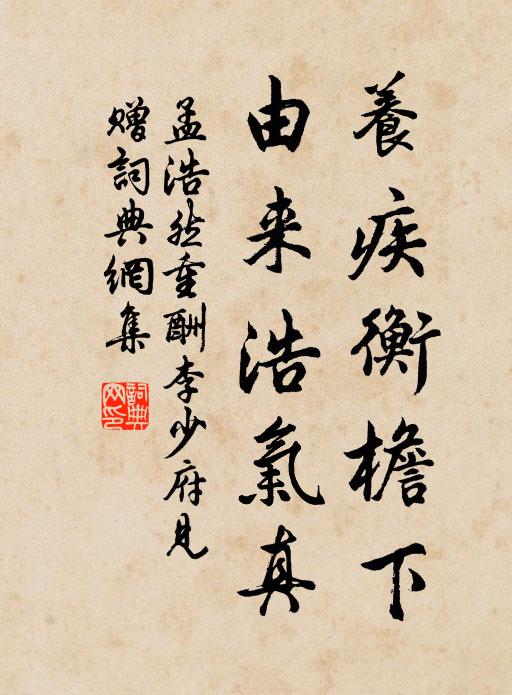 養疾衡檐下
由来浩氣真
孟浩然重酬李少府見
贈詞典網集
詞典網印